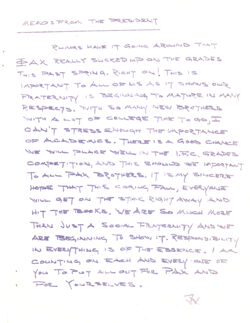 MEMOS FROM THE PRESIDENT
RUMORS HAVE IT GOING AROUND THAT
ΦΔΧ REALLY SUCKED UP ON THE GRADES
THIS PAST SPRING. RIGHT ON! THIS IS
IMPORTANT TO ALL OF US AS IT SHOWS OUR
FRATERNITY IS BEGINNING TO MATURE IN MANY
RESPECTS. WITH SO MANY NEW BROTHERS
WITH A LOT OF COLLEGE TIME TO GO, I
CAN'T STRESS ENOUGH THE IMPORTANCE
OF ACADEMICS. THERE IS A GOOD CHANCE
WE WILL PLACE WELL IN THE I.F.C. GRADES
COMPETITION, AND THIS SHOULD BE IMPORTANT
TO ALL BROTHERS. IT IS MY SINCERE
HOPE THAT THIS COMING FALL, EVERYONE
WILL GET ON THE STICK RIGHT AWAY AND
HIT THE BOOKS. WE ARE SO MUCH MORE
THAN JUST A SOCIAL FRATERNITY AND WE
ARE BEGINNING TO SHOW IT. RESPONSIBILITY
IN EVERYTHING IS OF THE ESSENCE. I AM
COUNTING ON EACH AND EVERY ONE OF
YOU TO PUT ALL OUT FOR AND
FOR YOURSELVES.